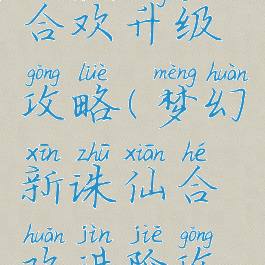 合欢升级
gōng lüè mèng huàn
攻略(梦幻
xīn zhū xiān hé
新诛仙合
huān jìn jiē gōng
欢进阶攻